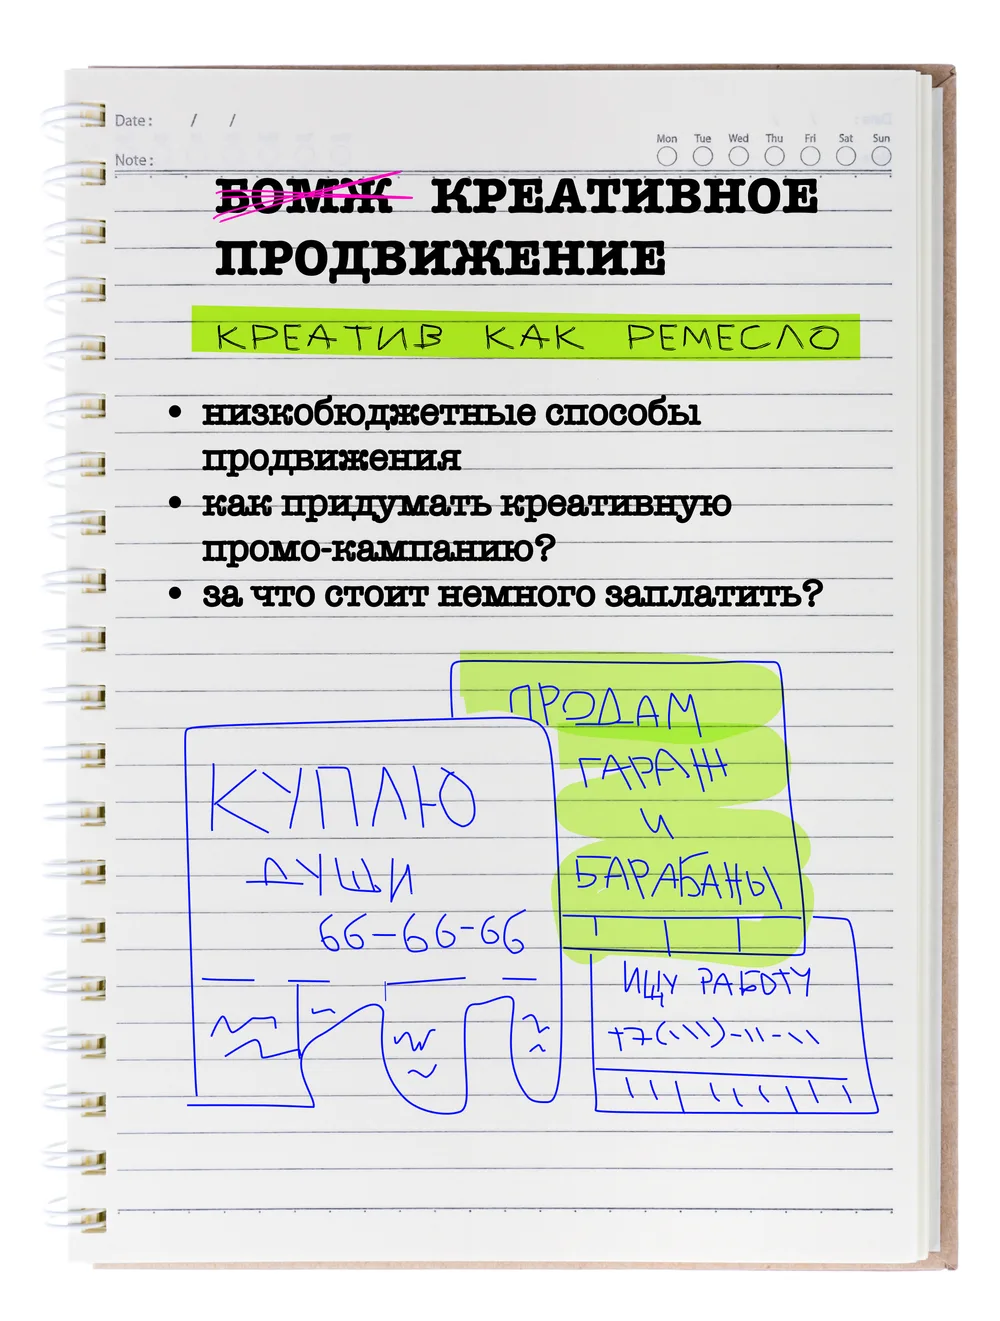 Date: / /
Note:
Mon Tue Wed Thu Fri Sat Sun
БОМЖ КРЕАТИВНОЕ
ПРОДВИЖЕНИЕ
КРЕАТИВ КАК РЕМЕСЛО
• низкобюджетные способы
продвижения
• как придумать креативную
промо-кампанию?
• за что стоит немного заплатить?
ПРОДАМ
ГАРАЖ
И
БАРАБАНЫ
КУПЛЮ
ДУШИ
66-66-66
ИЩУ РАБОТУ
+7(\\\)-11-\\